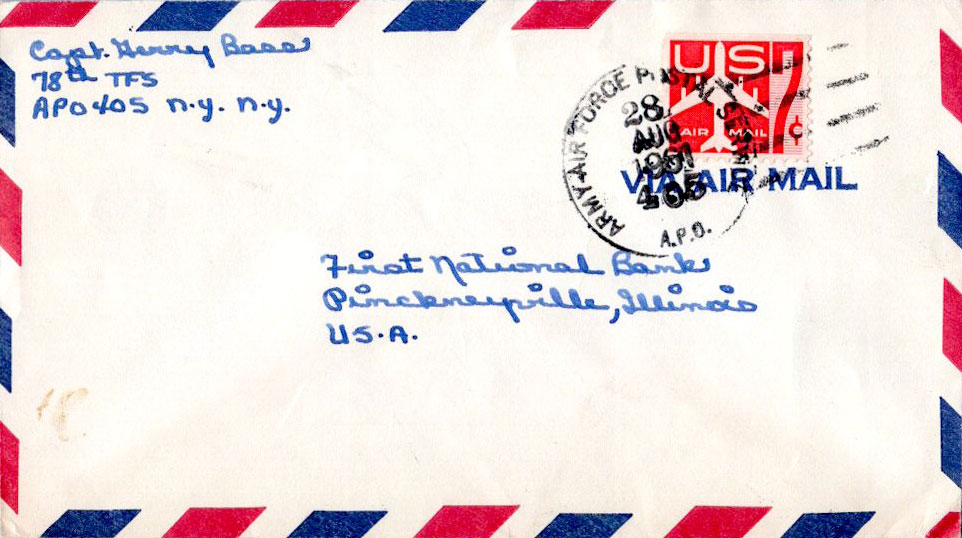 Capt. Gerry Bass
78th TFS
APO 405 N.Y. N.Y.
US 7¢
AIR MAIL
ARMY-AIR FORCE POSTAL SERVICE
28
AUG
1961
405
A.P.O.
VIA AIR MAIL
First National Bank
Pinckneyville, Illinois
U.S.A.